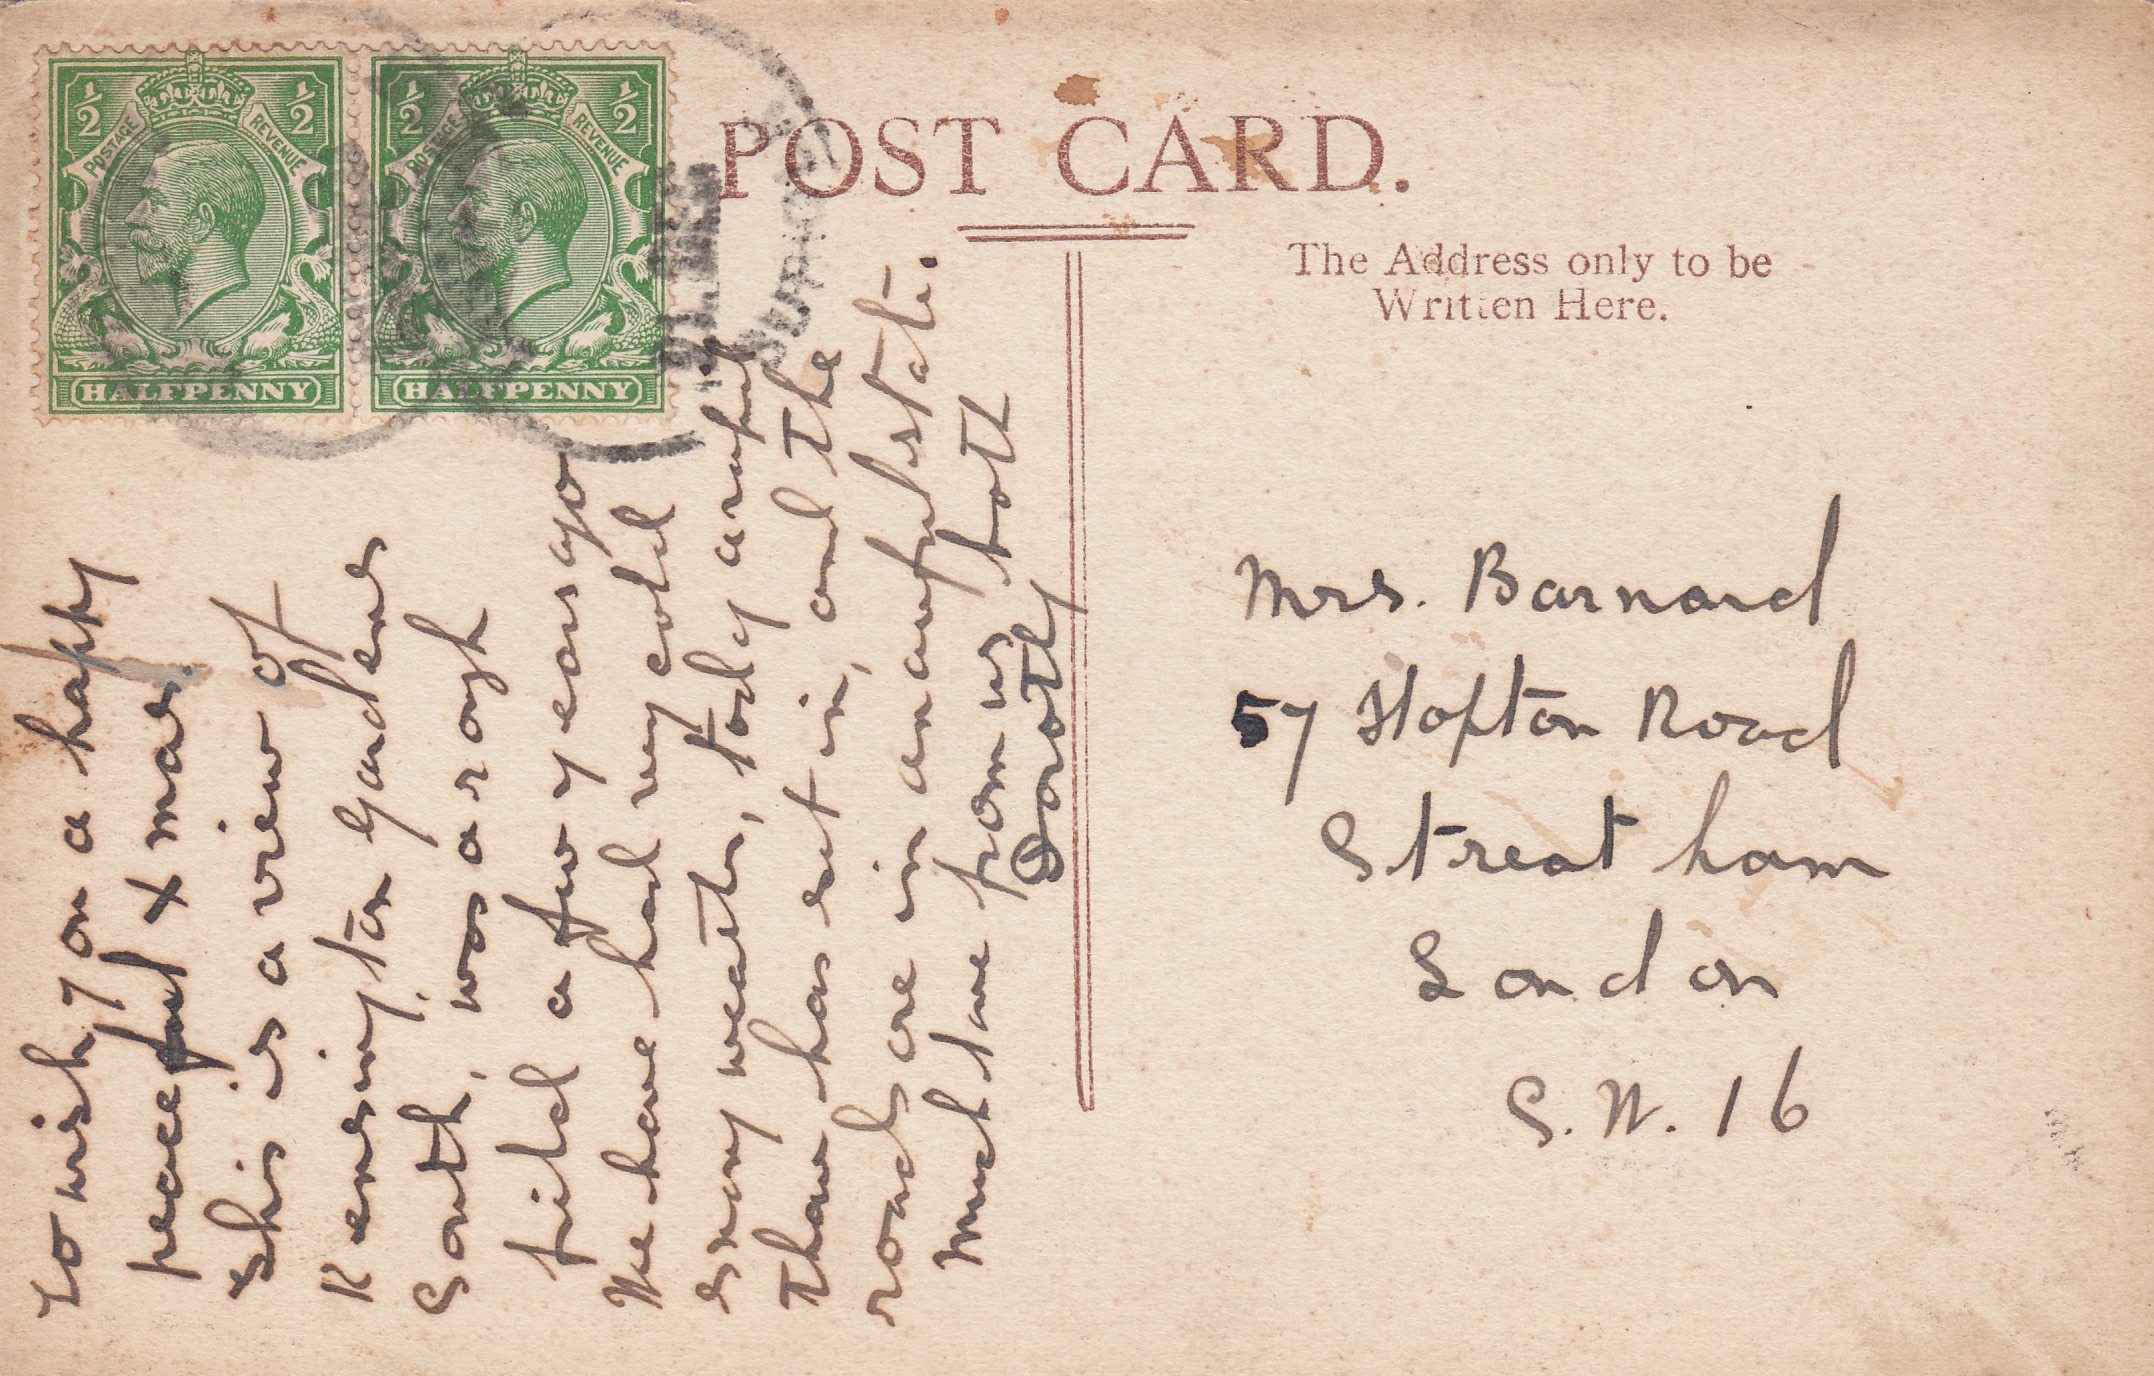 ½ ½
POSTAGE REVENUE
HALFPENNY
½ ½
POSTAGE REVENUE
HALFPENNY
POST CARD.
The Address only to be
Written Here.
To wish you a happy
peaceful Xmas.
This is a view of
Kensington Gardens
South, was a rough
field a few years ago
We have had very cold
snowy weather, today a
thaw has set in, and the
roads are in an awful state.
Much love from us both
Dorothy
Mrs. Barnard
57 Hopton Road
Streatham
London
S.W.16